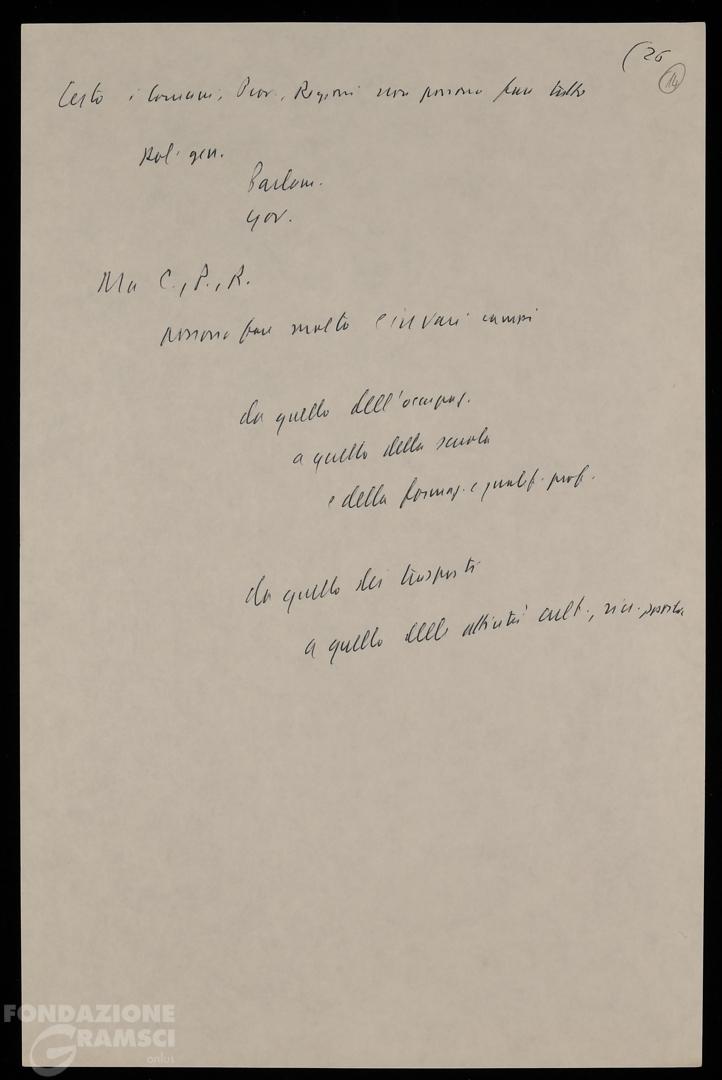 (26
14
Certo i Comuni, Prov., Regioni non possono fare tutto
Pol. gen.
Parlam.
Gov.
Ma C., P., R.
possono fare molto e in vari campi
da quello dell'occupaz.
a quello della scuola
e della formaz. e qualif. prof.
da quello dei trasporti
a quello delle attività cult., ric.
FONDAZIONE
GRAMSCI
onlus